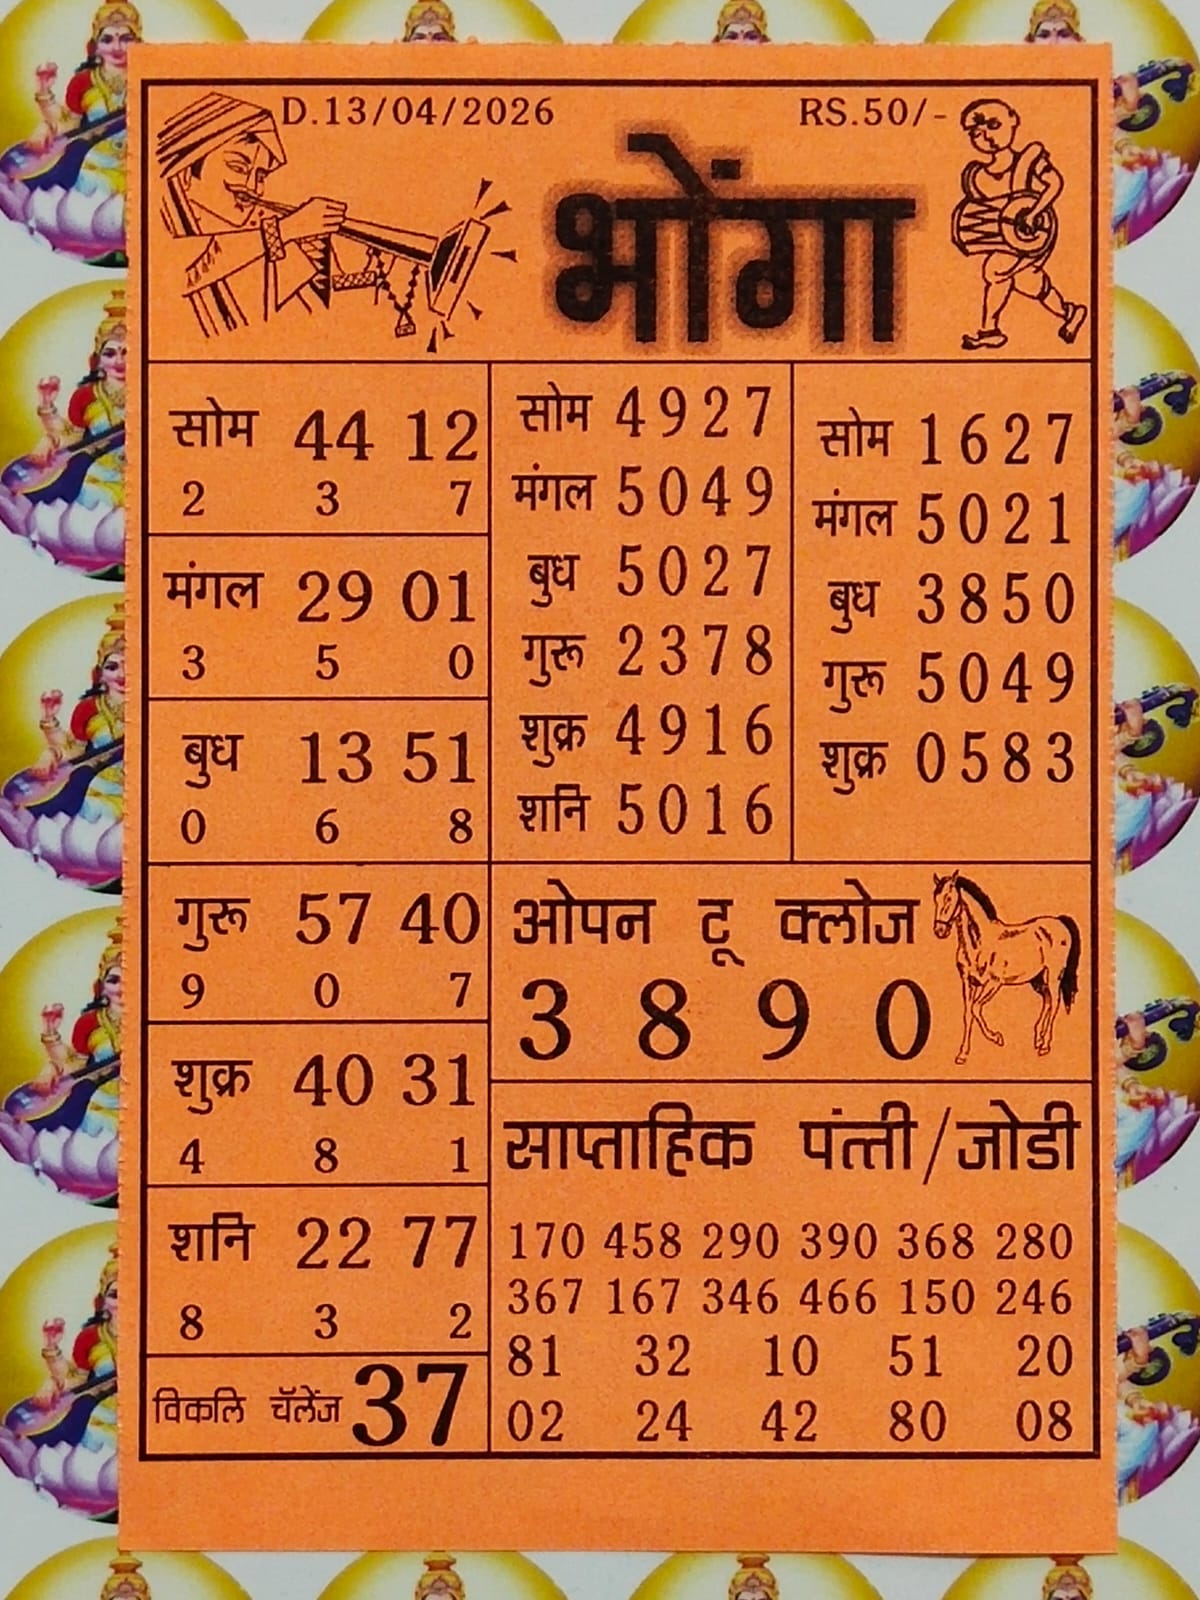 D.13/04/2026 RS.50/-
भोंगा
सोम 44 12
2 3 7
मंगल 29 01
3 5 0
बुध 13 51
0 6 8
गुरू 57 40
9 0 7
शुक्र 40 31
4 8 1
शनि 22 77
8 3 2
विकलि चॅलेंज 37
सोम 4927
मंगल 5049
बुध 5027
गुरू 2378
शुक्र 4916
शनि 5016
सोम 1627
मंगल 5021
बुध 3850
गुरू 5049
शुक्र 0583
ओपन टू क्लोज
3 8 9 0
साप्ताहिक पंत्ती/जोडी
170 458 290 390 368 280
367 167 346 466 150 246
81 32 10 51 20
02 24 42 80 08